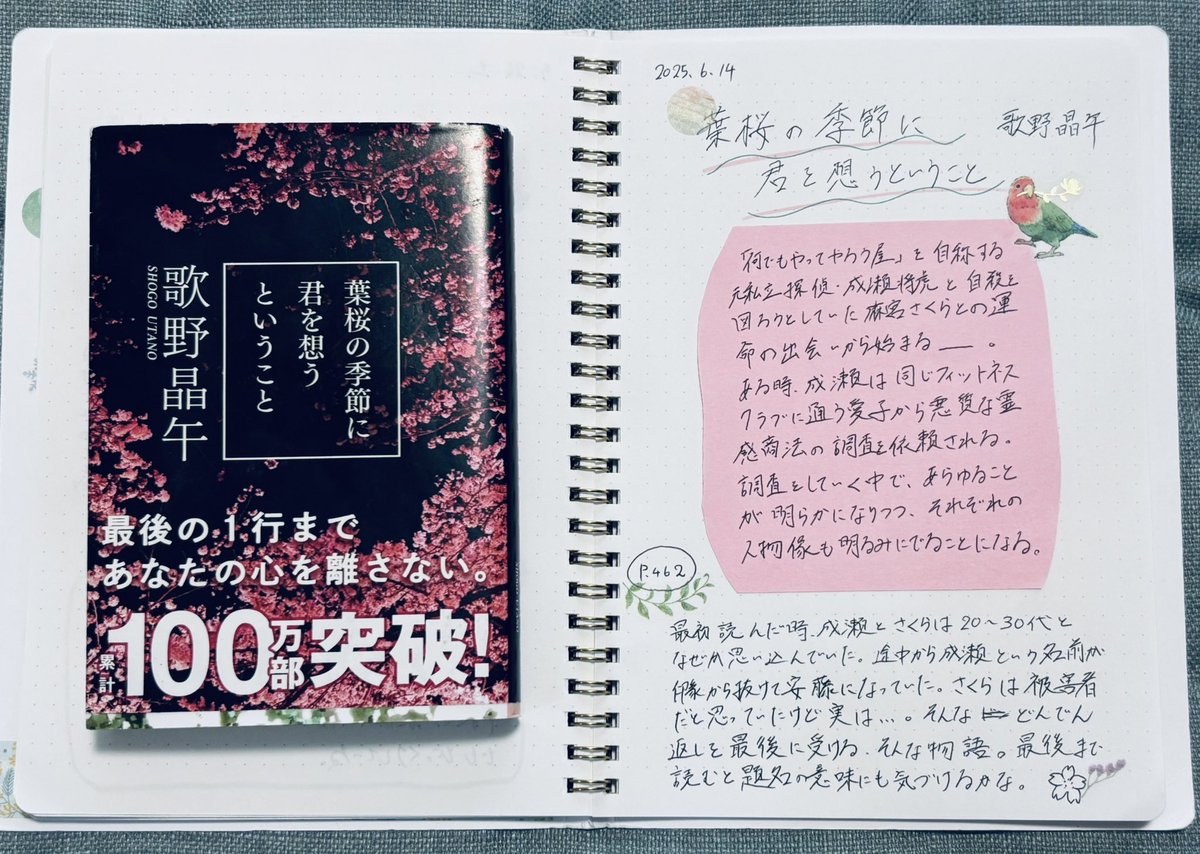 葉桜の季節に
君を想う
ということ
歌野晶午
SHOGO UTANO
最後の1行まで
あなたの心を離さない。
累計
100万部突破!
2025.6.14
葉桜の季節に 歌野晶午
君を想うということ
「何でもやってやろう屋」を自称する
元私立探偵・成瀬将虎と自殺を
図ろうとしていた麻宮さくらとの運
命の出会いから始まる――。
ある時、成瀬は同じフィットネス
クラブに通う愛子から悪質な霊
感商法の調査を依頼される。
調査をしていく中で、あらゆること
が明らかになりつつ、それぞれの
人物像も明るみにでることになる。
P.462
最初読んだ時、成瀬とさくらは20〜30代と
なぜか思い込んでいた。途中から成瀬という名前が
像から抜けて安藤になっていた。さくらは被害者
だと思っていたけど実は…。そんな どんでん
返しを最後に受ける そんな物語。最後まで
読むと題名の意味にも気づけるかな。